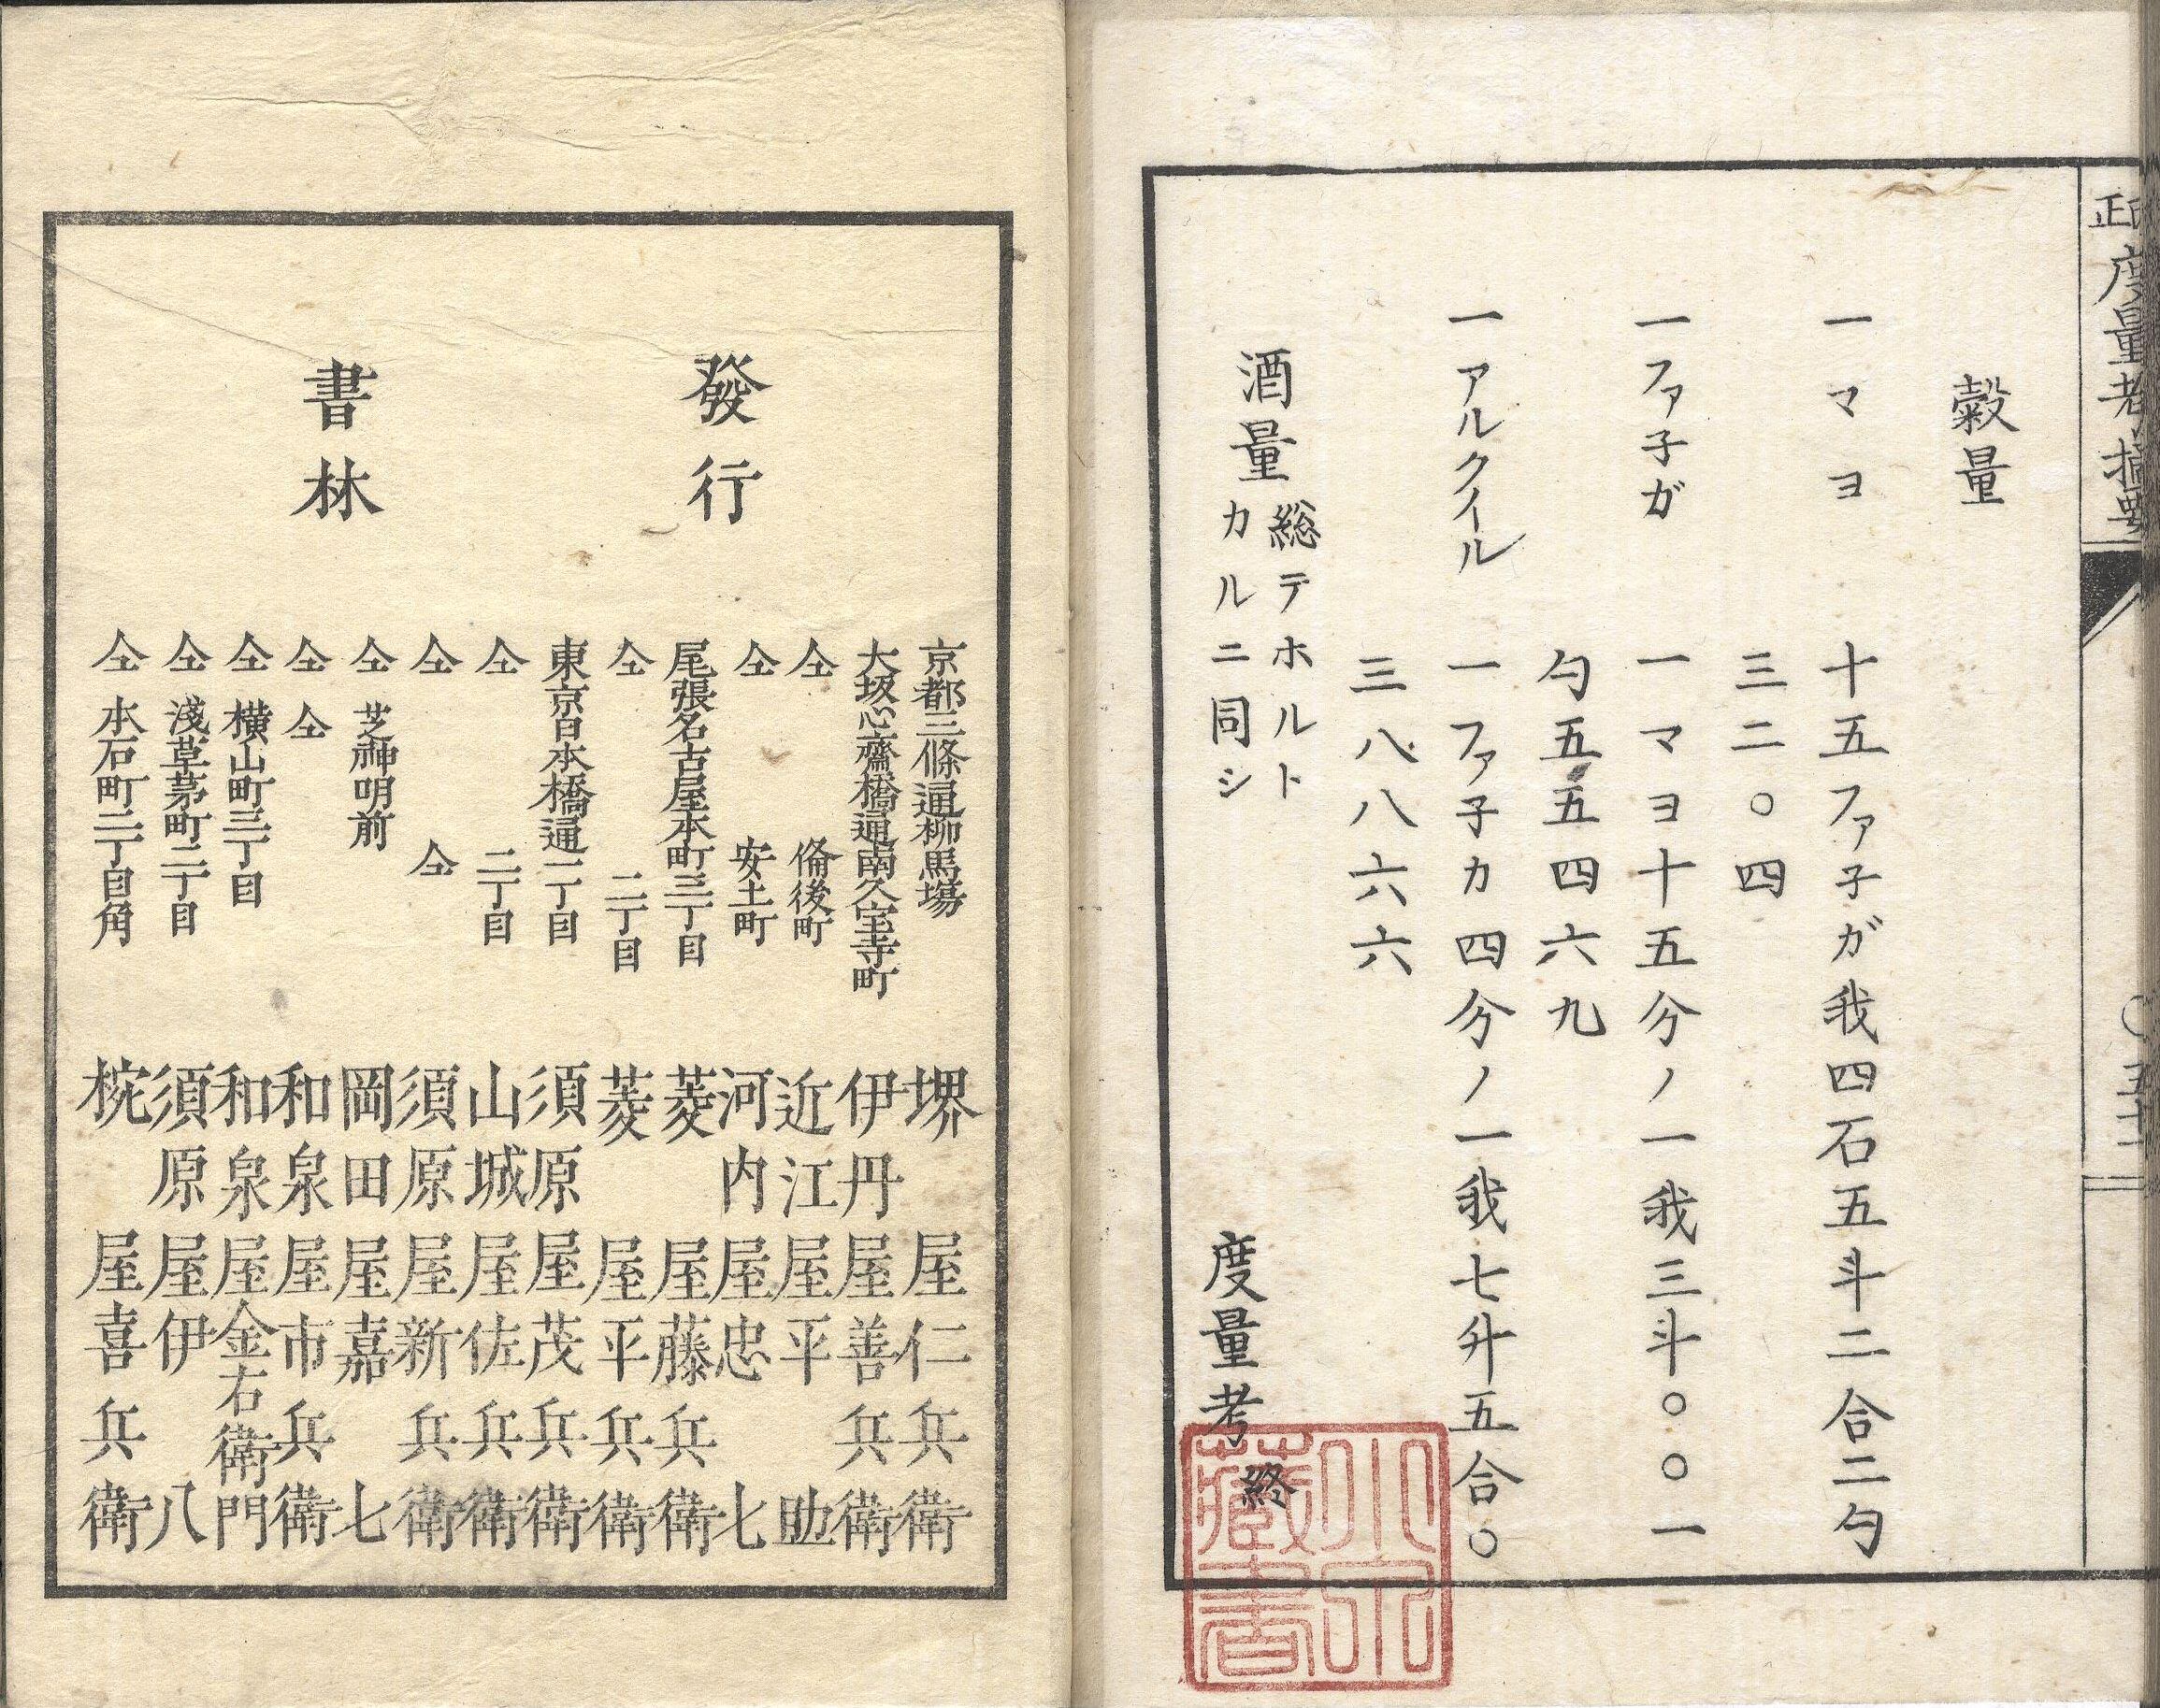 度量考摘要
穀量
一マヨ 十五ファ子ガ我四石五斗二合二勺
三二〇四
一ファ子ガ 一マヨ十五分ノ一我三斗〇〇一
勺五五四六九
一アルクイール 一ファ子カ四分ノ一我七升五合〇
三八八六六
酒量 総テホルト
カルニ同シ
度量考終
小宗
藏書
發行
書林
京都三條通柳馬場 堺屋仁兵衛
大坂心齋橋通南久宝寺町 伊丹屋善兵衛
仝 備後町 近江屋平助
仝 安土町 河内屋忠七
尾張名古屋本町三丁目 菱屋藤兵衛
仝 二丁目 菱屋平兵衛
東京日本橋通一丁目 須原屋茂兵衛
仝 二丁目 山城屋佐兵衛
仝 仝 須原屋新兵衛
仝 芝神明前 岡田屋嘉七
仝 仝 和泉屋市兵衛
仝 横山町三丁目 和泉屋金右衛門
仝 淺草茅町二丁目 須原屋伊八
仝 本石町二丁目角 椀屋喜兵衛